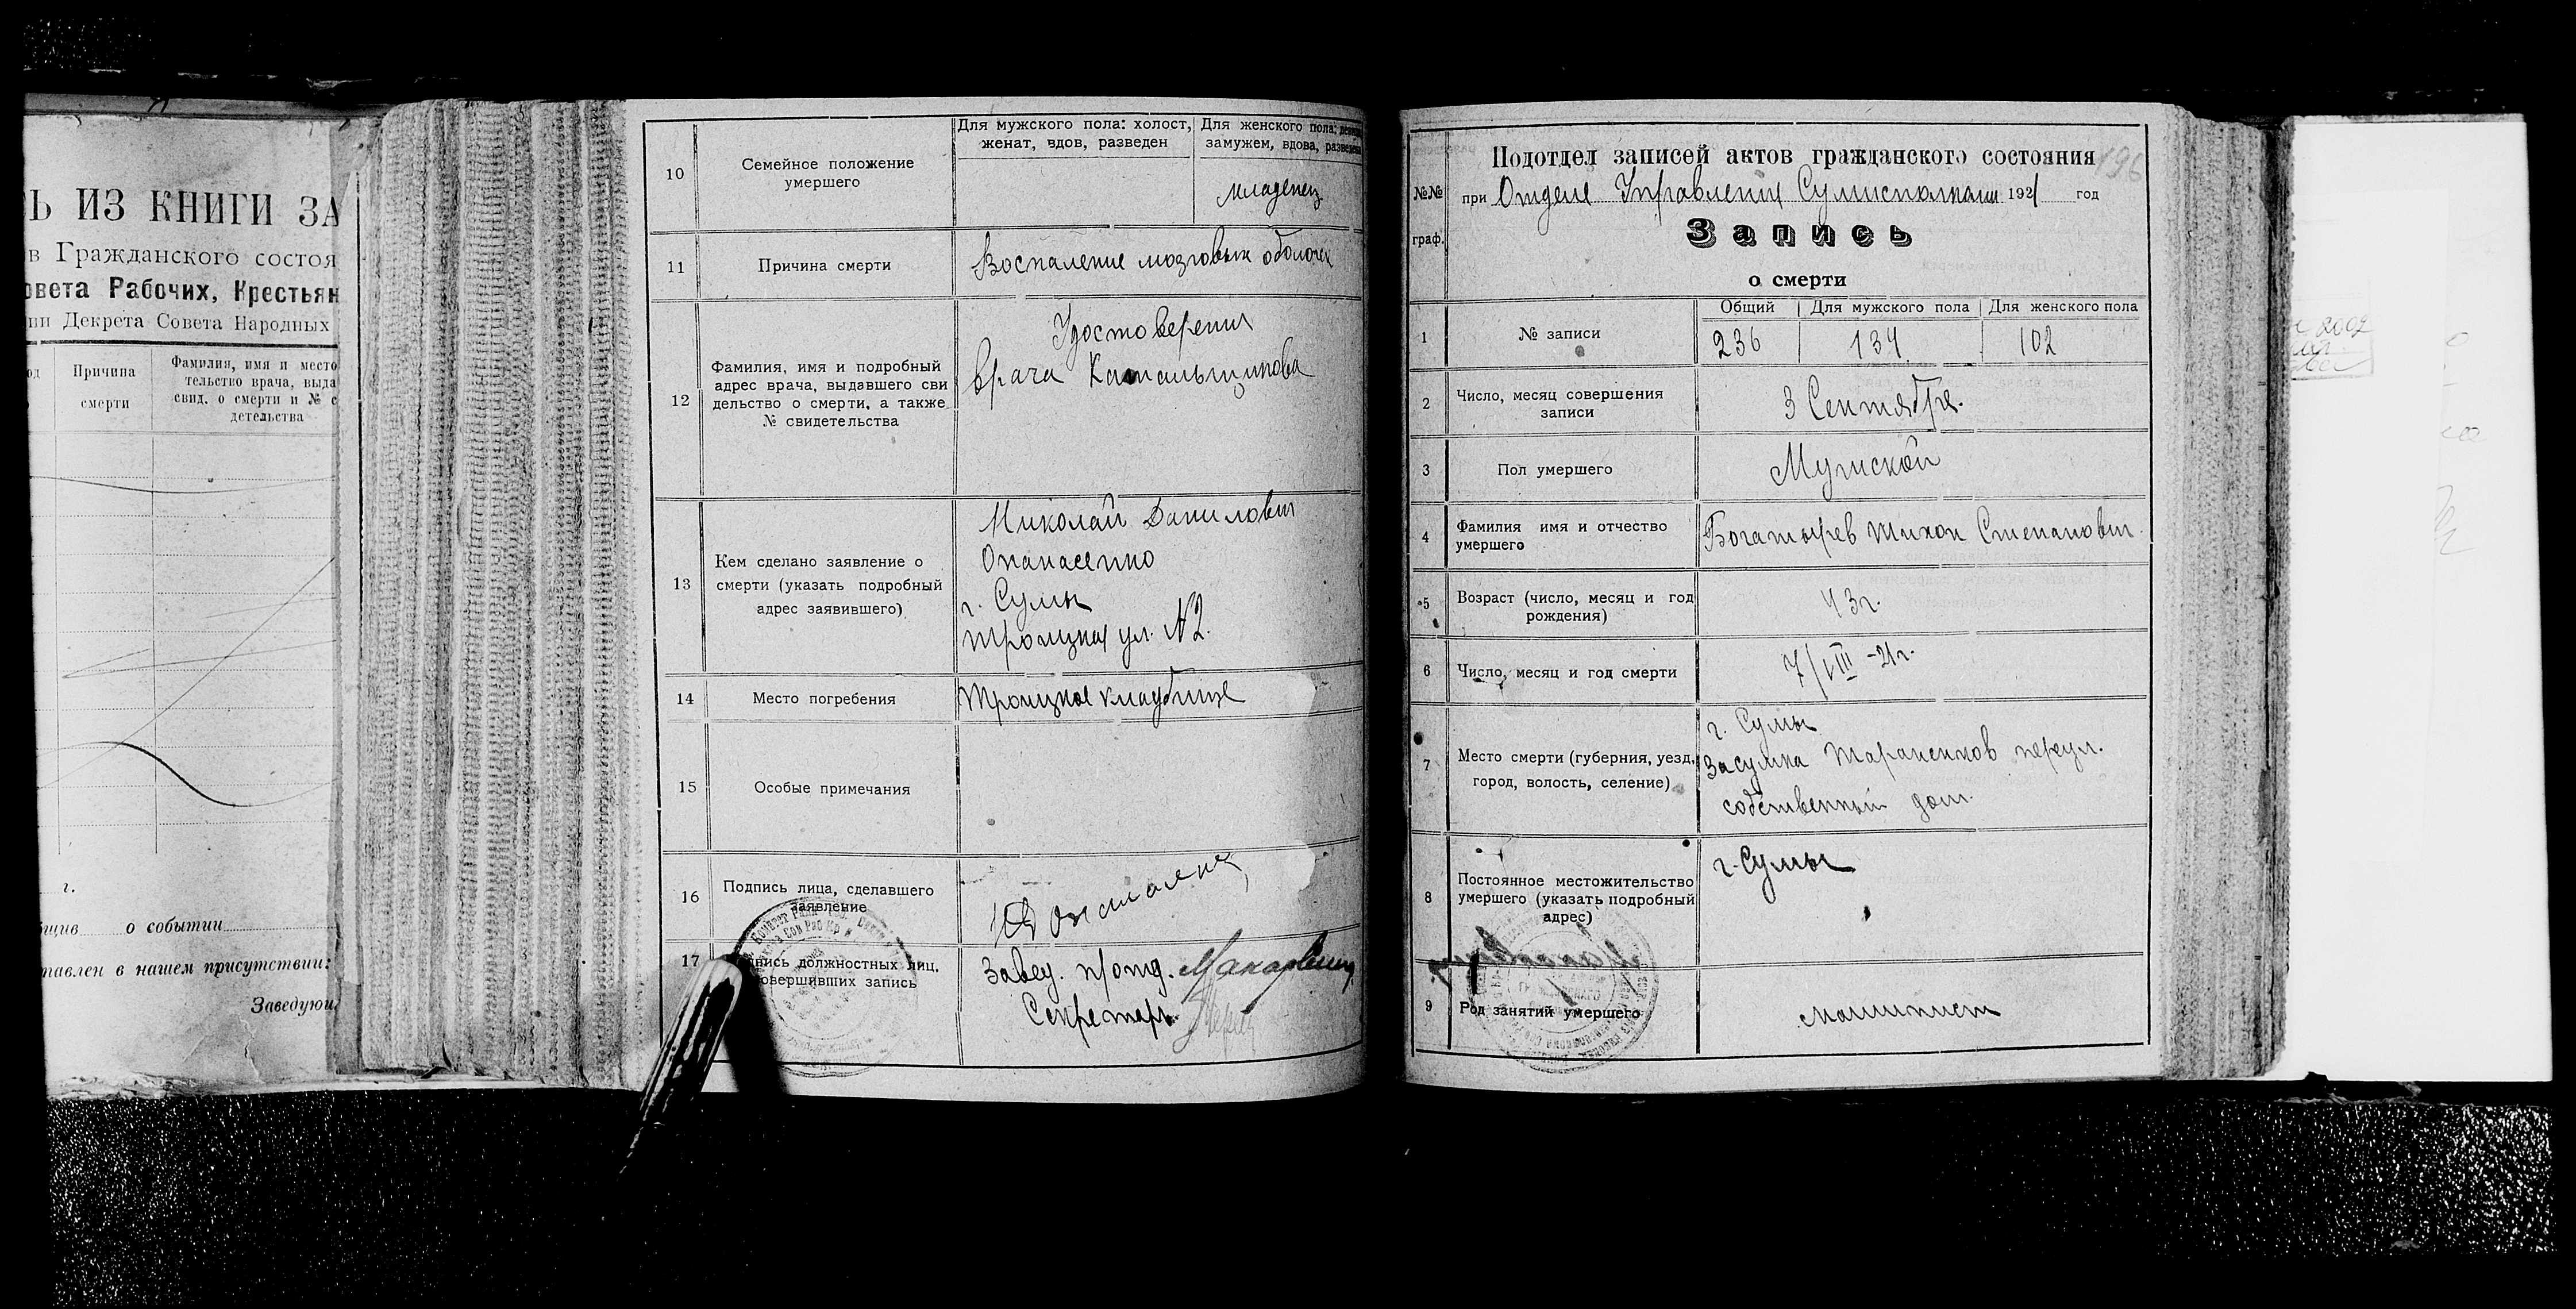 Ь ИЗ КНИГИ ЗА
в Гражданского состоя
овета Рабочих, Крестьян
ии Декрета Совета Народных
Причина
смерти
Фамилия, имя и место
тельство врача, выда
свид. о смерти и № с
детельства
г.
о событии
тавлен в нашем присутствии:
Заведующ
10
Семейное положение
умершего
Для мужского пола: холост,
женат, вдов, разведен
Для женского пола:
замужем, вдова, разведена
младенец
11
Причина смерти
Воспаление мозговых оболочек
12
Фамилия, имя и подробный
адрес врача, выдавшего сви
дельство о смерти, а также
№ свидетельства
Удостоверения
врача
13
Кем сделано заявление о
смерти (указать подробный
адрес заявившего)
Николай Данилович
Опанасенко
г. Сумы
Троицкая ул. №2.
14
Место погребения
Троицкое кладбище
15
Особые примечания
16
Подпись лица, сделавшего
заявление
17
дпись должностных лиц,
овершивших запись
Завед. п/отд. Макаревич
Секретарь
196
Подотдел записей актов гражданского состояния
№№
граф.
при Отделе Управления Сумисполкома 1921 год
Запись
о смерти
1
№ записи
Общий
Для мужского пола
Для женского пола
236
134
102
2
Число, месяц совершения
записи
3 Сентября.
3
Пол умершего
Мужской
4
Фамилия имя и отчество
умершего
Богатырев Тихон Степанович
5
Возраст (число, месяц и год
рождения)
43г.
6
Число, месяц и год смерти
7/VIII -21г.
7
Место смерти (губерния, уезд,
город, волость, селение)
г. Сумы
Засумка Тараненков переул.
собственный дом
8
Постоянное местожительство
умершего (указать подробный
адрес)
г. Сумы
9
Род занятий умершего
машинист
2002